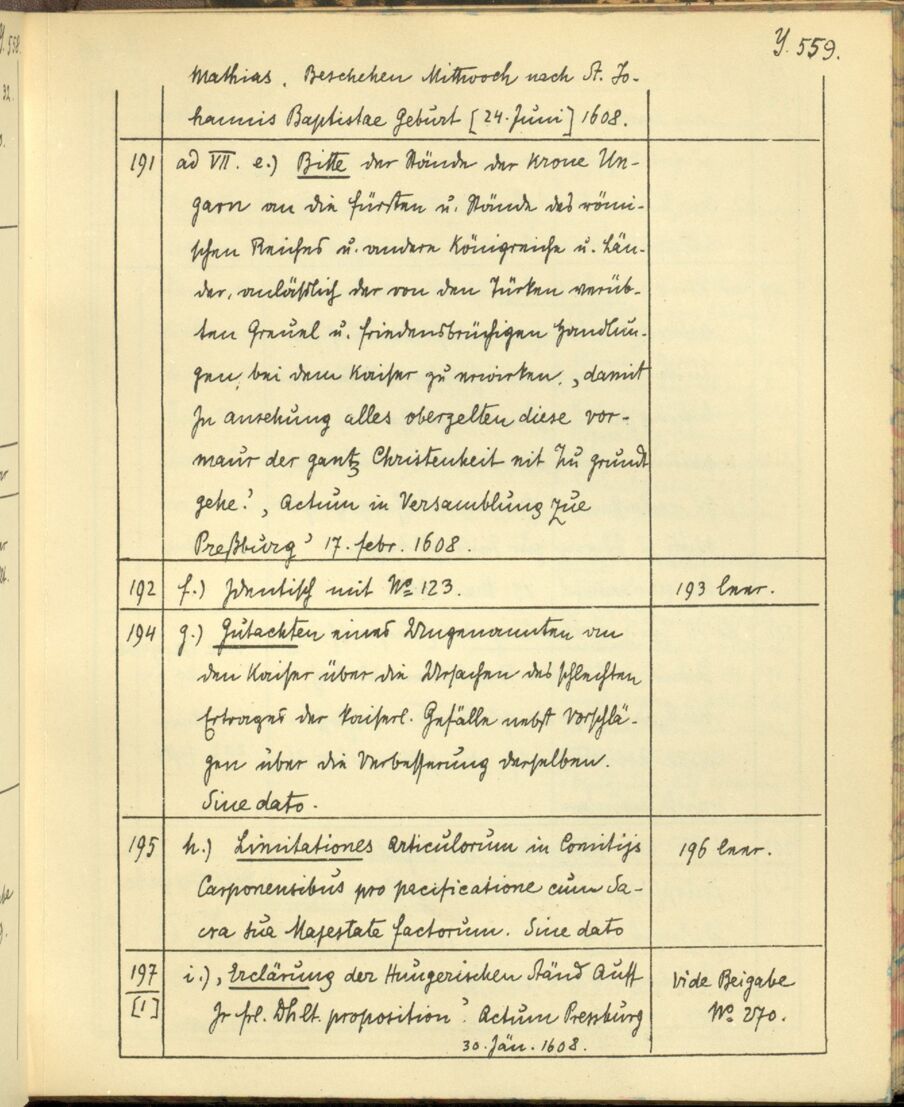 Y. 559.
Mathias. Beschehen Mittwoch nach St. Jo-
hannis Baptistae Geburt [24. Juni] 1608.
191 ad VII. e.) Bitte der Stände der Krone Un-
garn an die Fürsten u. Stände des römi-
schen Reiches u. andere Königreiche u. Län-
der, anläßlich der von den Türken verüb-
ten Greuel u. friedensbrüchigen Handlun-
gen, bei dem Kaiser zu erwirken, „damit
In ansehung alles oberzelten diese vor-
maur der gantz Christenheit nit Zu grundt
gehe“, „Actum in Versamblung zue
Preßburg“ 17. Febr. 1608.
192 f.) Identisch mit No 123. 193 leer.
194 g.) Gutachten eines Ungenannten an
den Kaiser über die Ursachen des schlechten
Ertrages der kaiserl. Gefälle nebst Vorschlä-
gen über die Verbesserung derselben.
Sine dato.
195 h.) Limitationes Articulorum in Comitijs 196 leer.
Carponensibus pro pacificatione cum Sa-
cra sua Majestate factorum. Sine dato
197 i.) „Erclärung der Hungerischen Ständ Auff Vide Beigabe
[1] Ir frl. Dhlt. proposition“. Actum Pressburg No 270.
30. Jän. 1608.